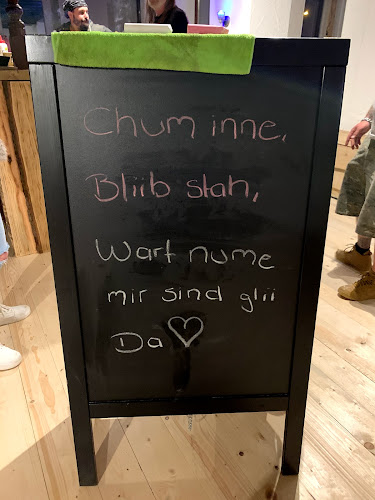 Chum inne,
Bliib stah,
Wart nume
mir sind glii
Da ♡